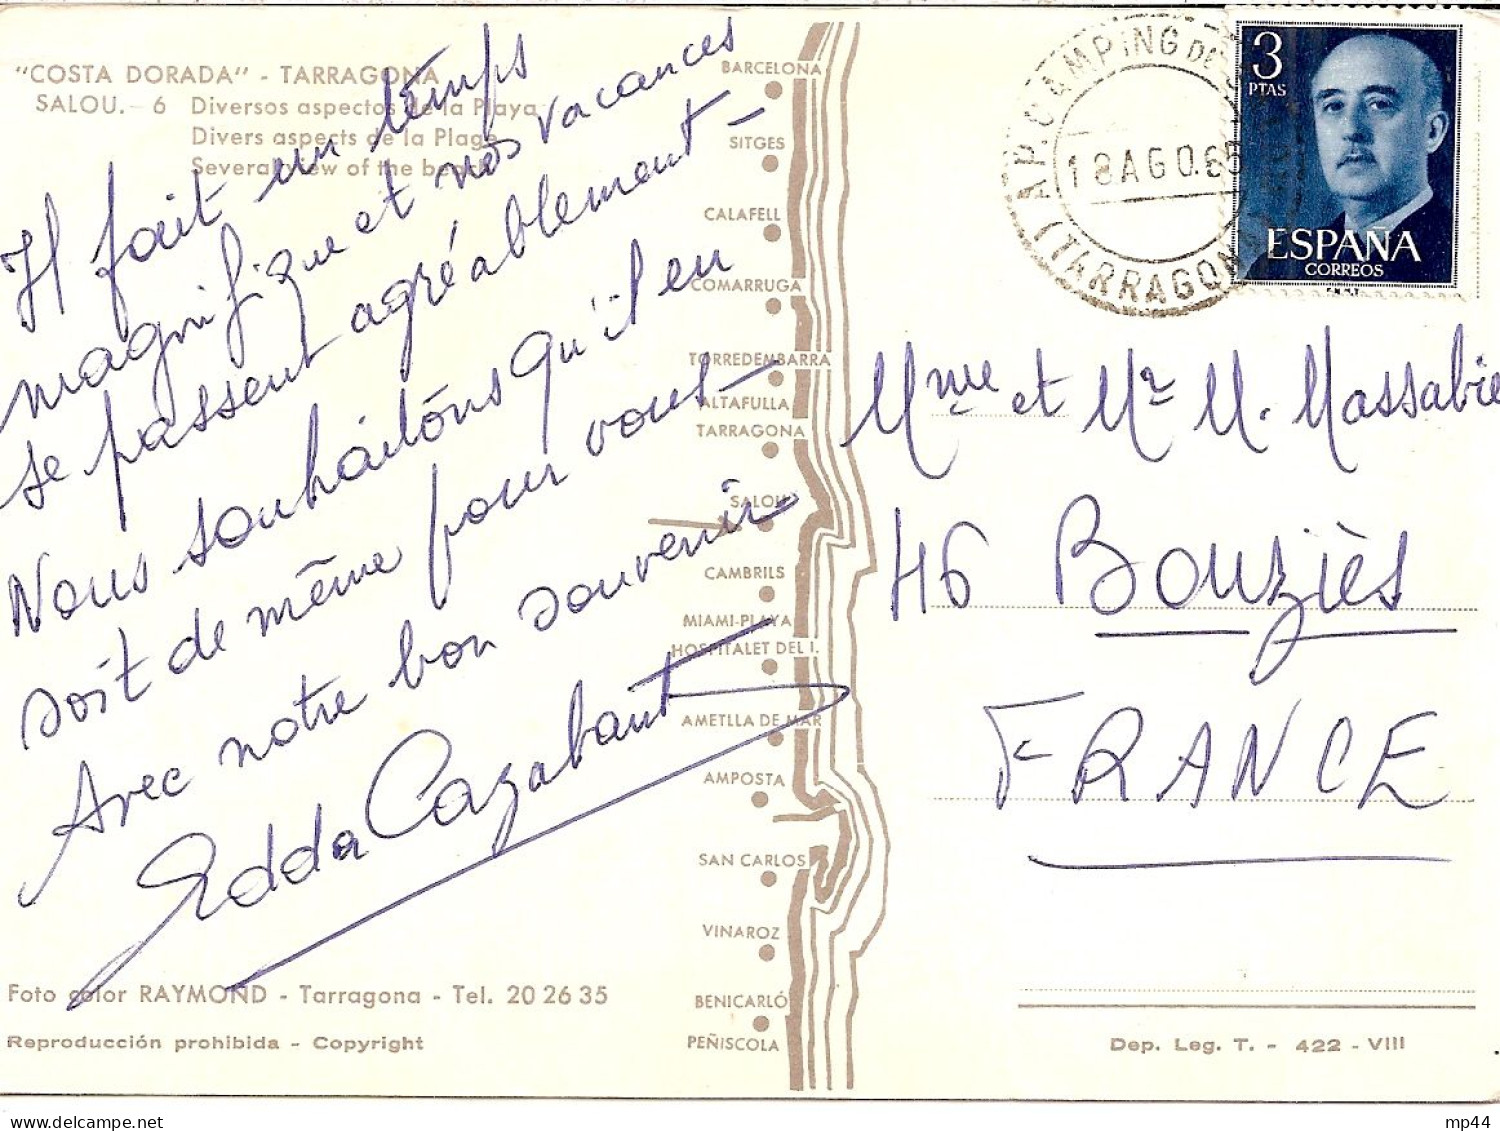 "COSTA DORADA" - TARRAGONA
SALOU. - 6 Diversos aspectos de la Playa
Divers aspects de la Plage
Several view of the beach
Il fait un temps
magnifique et nos vacances
se passent agréablement -
Nous souhaitons qu'il en
soit de même pour vous -
Avec notre bon souvenir
Edda Cazabant
Foto color RAYMOND - Tarragona - Tel. 20 26 35
Reproducción prohibida - Copyright
BARCELONA
SITGES
CALAFELL
COMARRUGA
TORREDEMBARRA
ALTAFULLA
TARRAGONA
SALOU
CAMBRILS
MIAMI-PLAYA
HOSPITALET DEL I.
AMETLLA DE MAR
AMPOSTA
SAN CARLOS
VINAROZ
BENICARLÓ
PEÑISCOLA
AP. CAMPING DE
18 AGO. 65
(TARRAGONA)
3
PTAS
ESPAÑA
CORREOS
Mme et Mr M. Massabie
46 Bouziès
FRANCE
Dep. Leg. T. - 422 - VIII
mp44